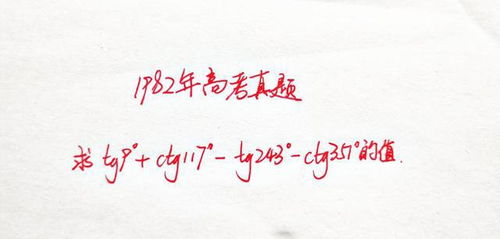 1982年高考真题
求tg9°+ctg117°-tg243°-ctg351°的值.